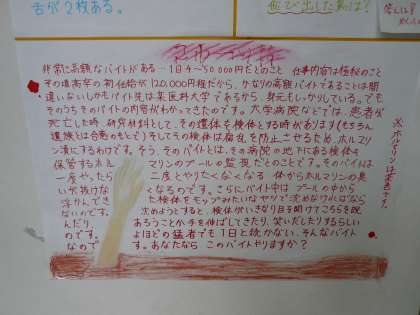 舌が2枚ある。
飛び出した
非常に高額なバイトがある…1日4～50000円だとのこと 仕事内容は極秘のこと
その頃高卒の初任給が120,000円程だから、かなりの高額バイトであることは間
違いないしかもバイト先は某医科大学であるから身元もしっかりしている。でも
そのうちそのバイトの内容がわかってきたのです。大学病院などでは、患者が
死亡した時、研究材料として、その遺体を検体とする時があります(もちろん
遺族とは合意のもとで)そしてその検体は腐乱を防止させるため、ホルマリ
ン漬にするわけです。そう、そのバイトとは、その病院の地下にある検体を
保管するホルマリンのプールの監視だとのことです。そのバイトは
一度やったら二度とやりたくなくなる 体からホルマリンの臭
いが抜けなくなるのです。さらにバイト中は プールの中から
浮かんできた検体をモップみたいなヤツで沈めなければなら
ないのです。沈めようとすると、検体がいきなり目を開けてこちらを睨
んだりあろうことか手を伸ばしてきたり、笑いだしたりするらしい
のです。よほどの猛者でも1日と続かない、そんなバイト
なのです。あなたなら このバイトやりますか?
※ホルマリンは茶色です。